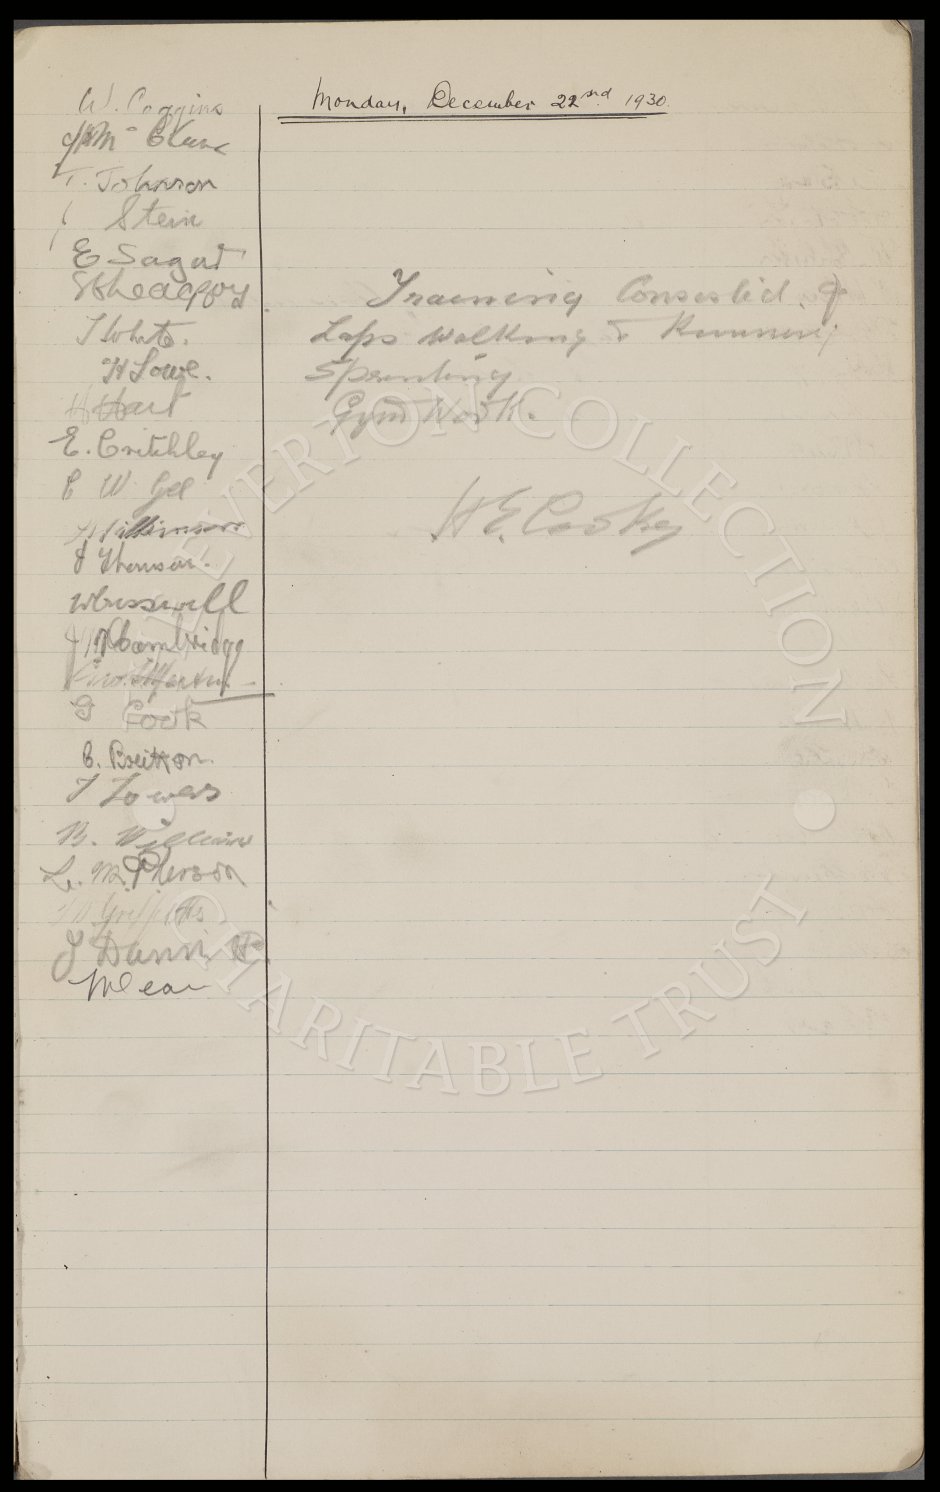 Monday, December 22nd. 1930.
W. Coggins
J McClure
T. Johnson
Stein
E Sagar
T White.
H Lowe.
H Hart
E. Critchley
C W Gee
J Thomson.
W Cresswell
G Cook
C. Britton.
T Lowers
B. Williams
L. McPherson
Griffiths
J Dunn
Training Consisted of
Laps walking & Running
Sprinting
Gym Work.
H E. Cooke
THE EVERTON COLLECTION
CHARITABLE TRUST